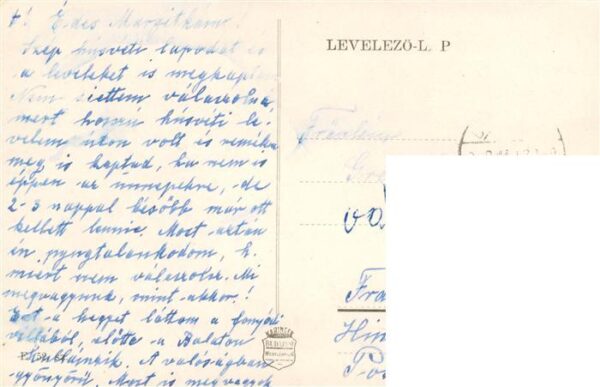 Édes Margitkám!
Szép húsvéti lapodat és
a leveleket is megkaptam
Nem siettem válaszolni
mert hosszú húsvéti le-
velem úton volt és remélem
meg is kaptad, ha nem is
éppen az ünnepekre, de
2-3 nappal később már ott
kellett lennie. Most aztán
én nyugtalankodom, h.
miért nem válaszolsz. Mi
megvagyunk, mint akkor!
Ezt a hegyet láttam a fonyódi
villából, előtte a Balaton
A valóságban
gyönyörű. Most is megvagyok
LEVELEZŐ-L P
Fräulein
Fra
BUDAPEST